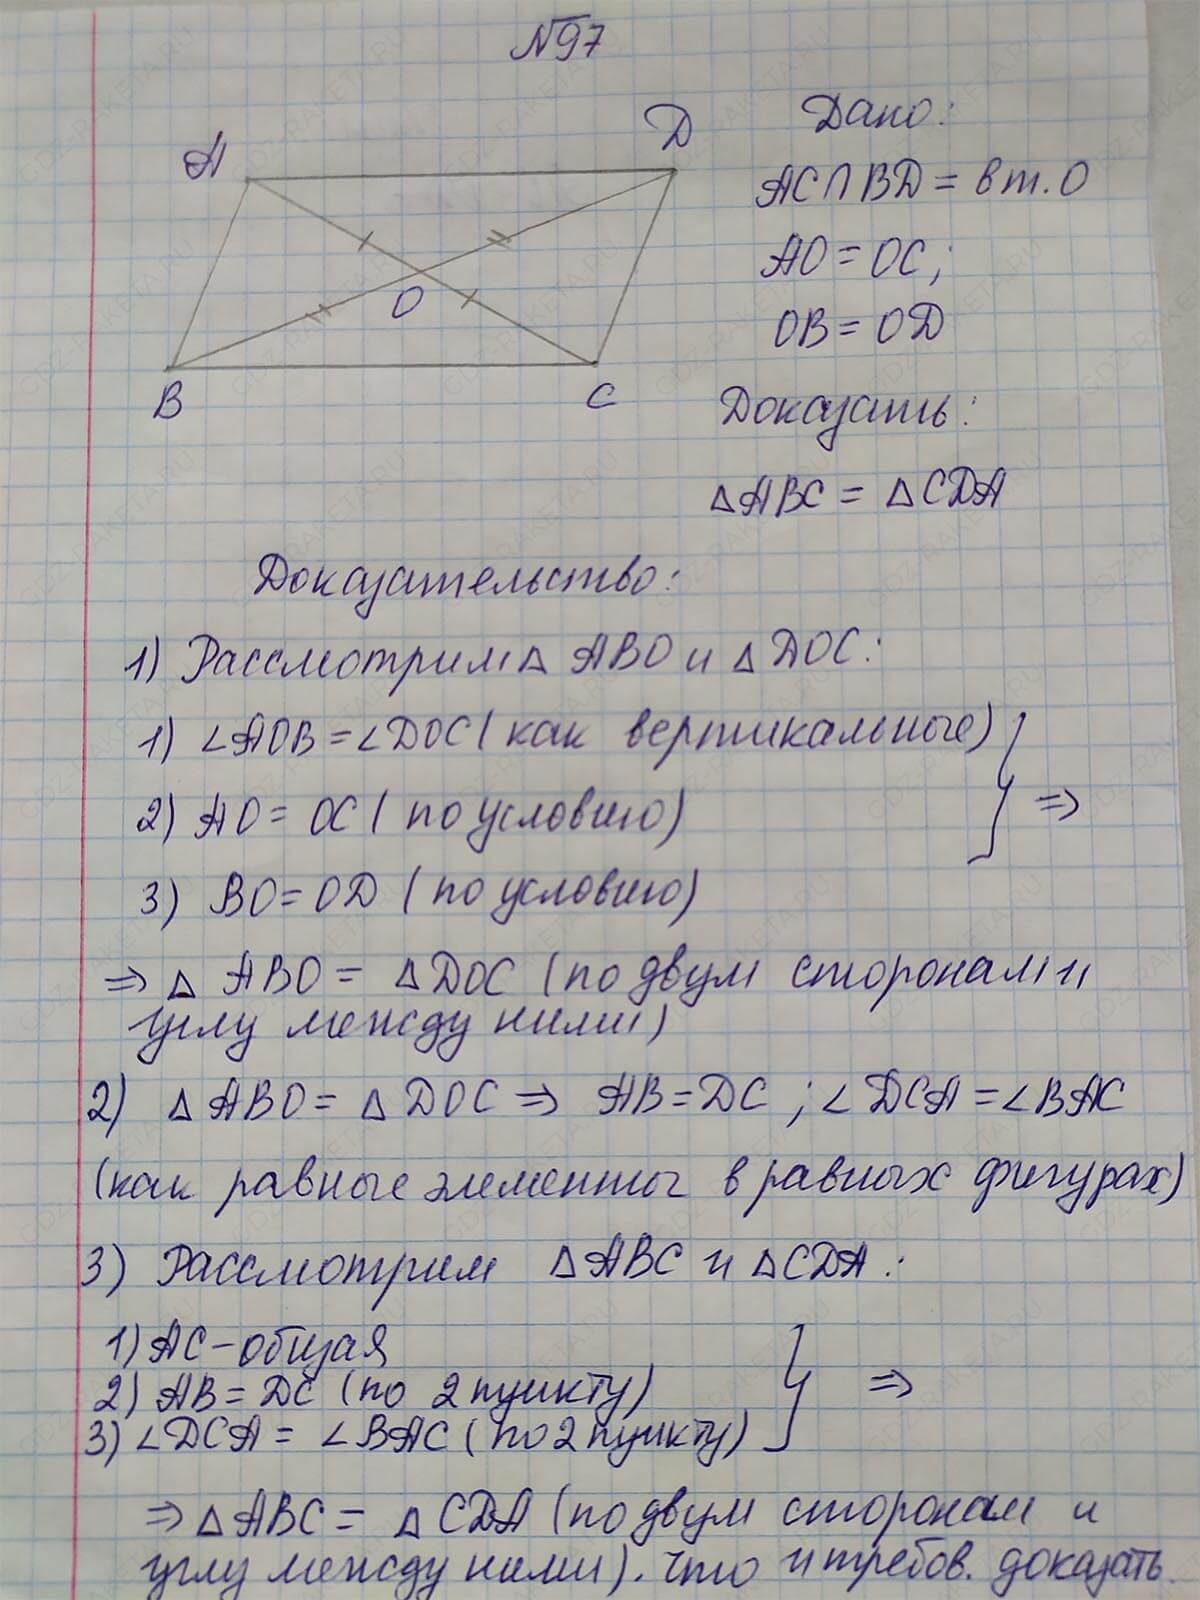 №97
A
D
O
B
C
Дано:
AC∩BD = в т. O
AO = OC;
OB = OD
Доказать:
△ABC = △CDA
Доказательство:
1) Рассмотрим △ ABO и △ DOC:
1) ∠AOB = ∠DOC (как вертикальные)
2) AO = OC (по условию)
3) BO = OD (по условию)
⇒
⇒ △ ABO = △DOC (по двум сторонам и
углу между ними)
2) △ ABO = △ DOC ⇒ AB = DC ; ∠ DCA = ∠BAC
(как равные элементы в равных фигурах)
3) Рассмотрим △ABC и △CDA:
1) AC - общая
2) AB = DC (по 2 пункту)
3) ∠DCA = ∠BAC (по 2 пункту)
⇒
⇒ △ABC = △CDA (по двум сторонам и
углу между ними). что и требов. доказать.
GDZ-RAKETA.RU